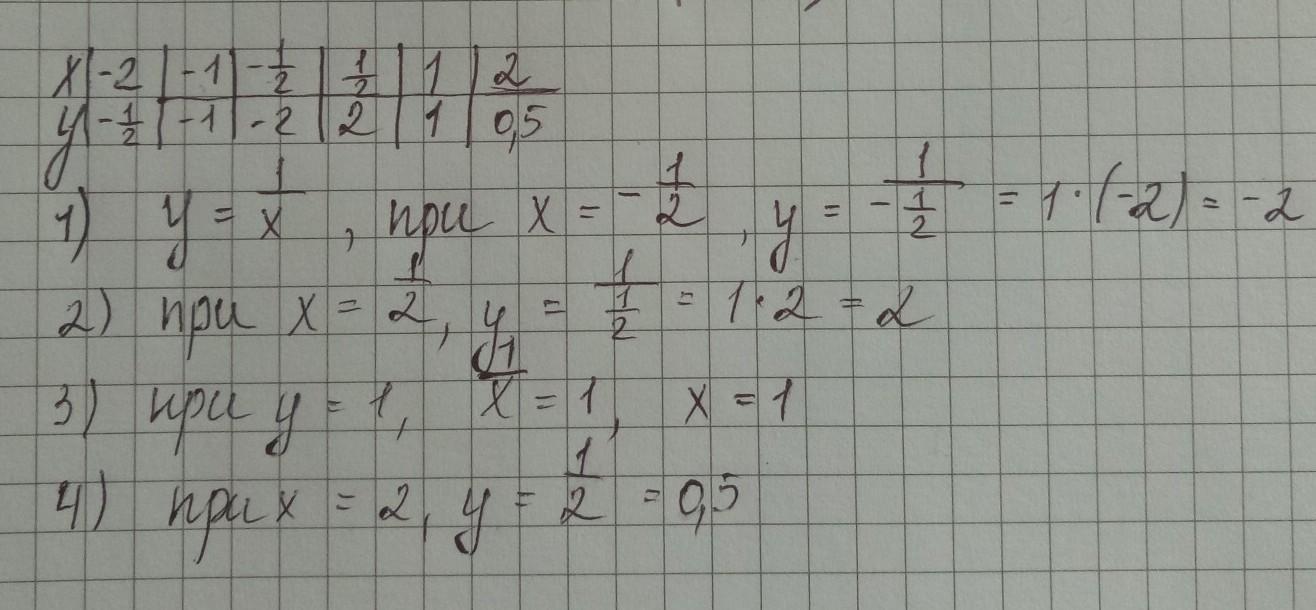 x | -2 | -1 | -1/2 | 1/2 | 1 | 2
y | -1/2 | -1 | -2 | 2 | 1 | 0,5
1) y = 1/x , при x = -1/2 , y = -1/(1/2) = 1·(-2) = -2
2) при x = 1/2, y = 1/(1/2) = 1·2 = 2
3) при y = 1, 1/x = 1, x = 1
4) при x = 2, y = 1/2 = 0,5